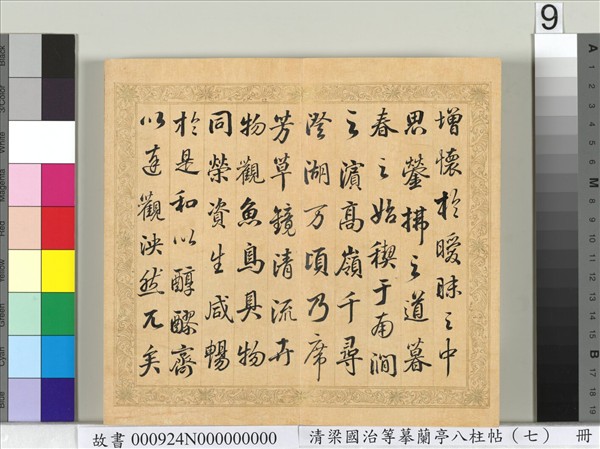 增懷於曖昧之中
思鎣拂之道暮
春之始禊于南澗
之濱高嶺千尋
澄湖万頃乃席
芳草鏡清流卉
物觀魚鳥具物
同榮資生咸暢
於是和以醇醪齊
以達觀泱然兀矣
9
Black
3/Color
White
Magenta
Red
Yellow
Green
Cyan
Blue
A
M
B
17
18
19
故書 000924N000000000
清梁國治等摹蘭亭八柱帖(七) 冊